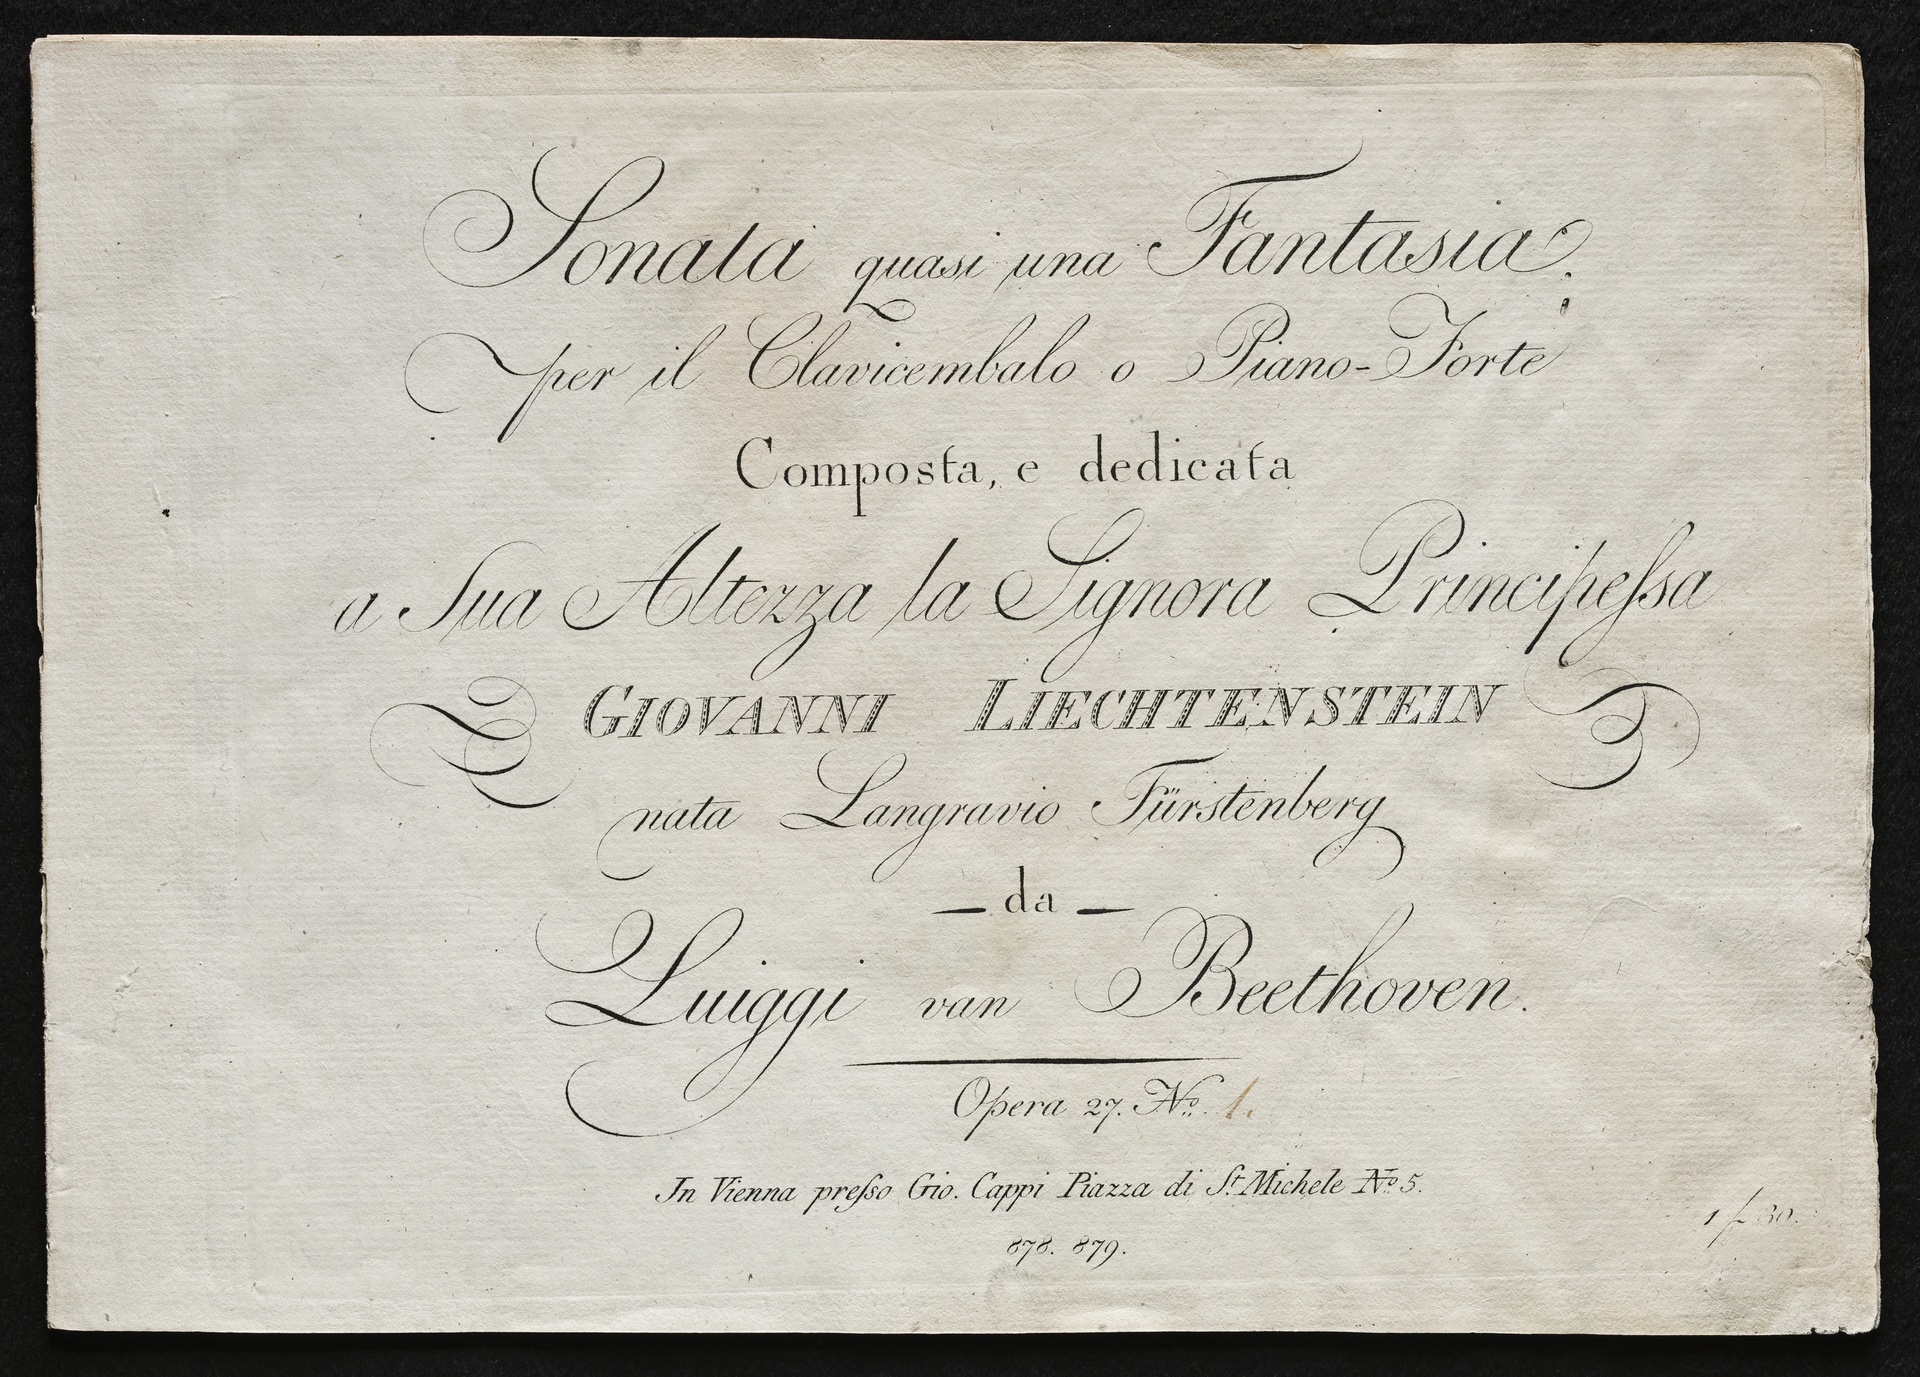 Sonata quasi una Fantasia
per il Clavicembalo o Piano-Forte
Composta, e dedicata
a Sua Altezza la Signora Principeſsa
GIOVANNI LIECHTENSTEIN
nata Langravio Fürstenberg
— da —
Luiggi van Beethoven.
Opera 27. No. 1.
In Vienna preſso Gio. Cappi Piazza di St. Michele No. 5.
878. 879.
1 f 30.